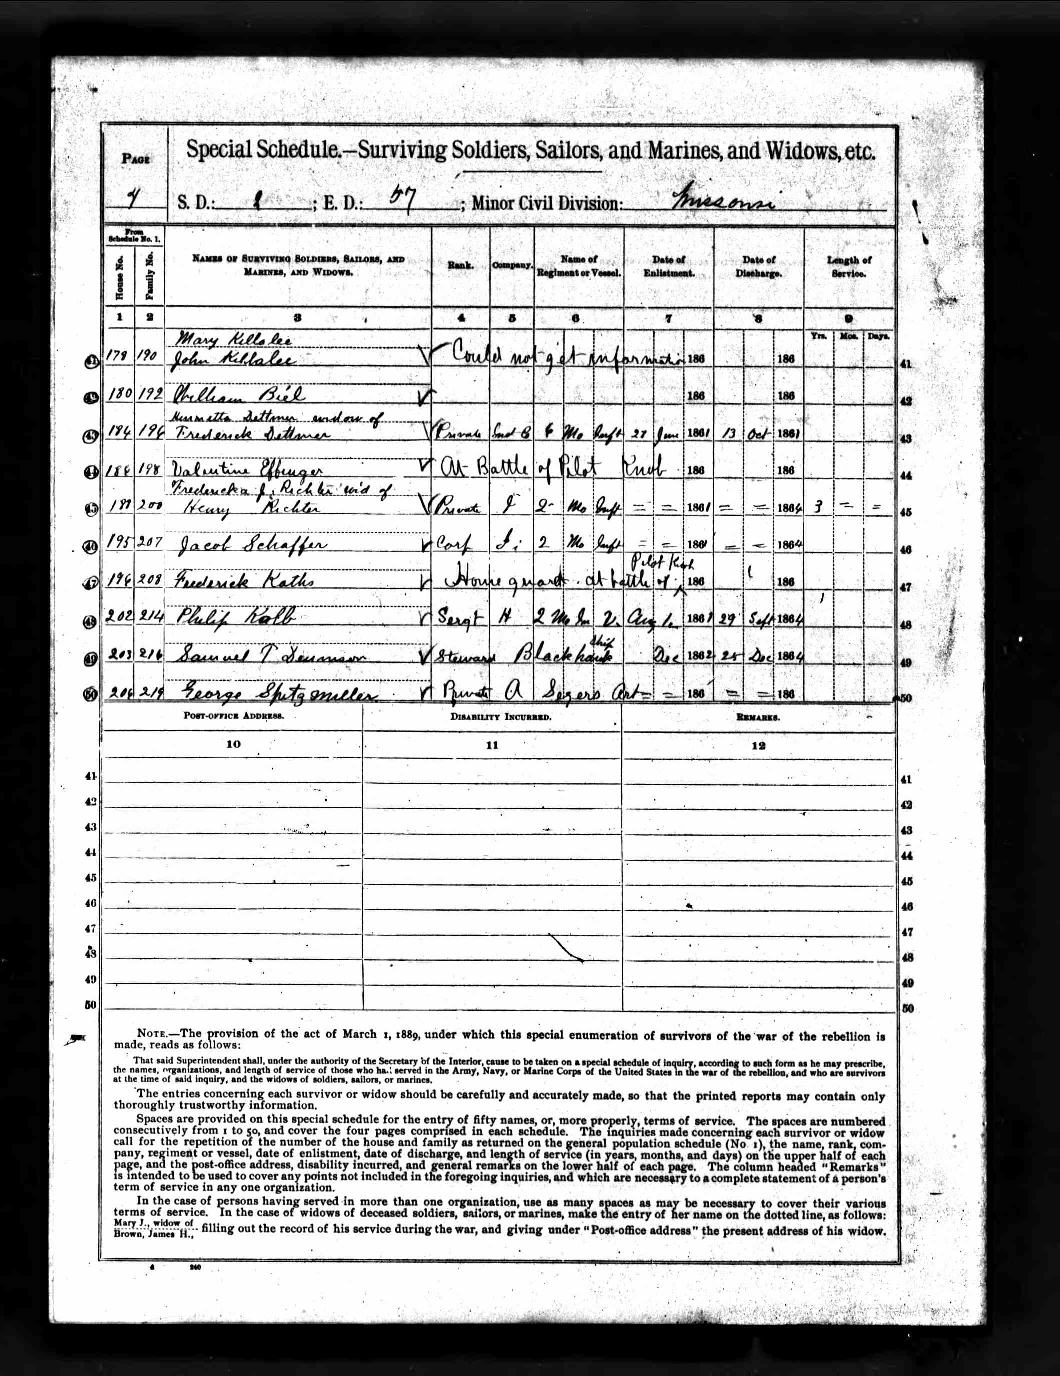 PAGE
4
Special Schedule.—Surviving Soldiers, Sailors, and Marines, and Widows, etc.
S. D.: 1 ; E. D.: 57 ; Minor Civil Division: Missouri
From Schedule No. 1.
House No.
Family No.
NAMES OF SURVIVING SOLDIERS, SAILORS, AND MARINES, AND WIDOWS.
Rank.
Company.
Name of Regiment or Vessel.
Date of Enlistment.
Date of Discharge.
Length of Service.
1 2 3 4 5 6 7 8 9
Yrs. Mos. Days.
Mary
41 178 190 John Could not get information 186 186 41
42 180 192 William Biel 186 186 42
Dettmer widow of
43 184 196 Frederick Dettmer Private B 6 Mo Inft 28 June 1861 13 Oct 1861 43
44 198 Valentine Effinger At Battle of Pilot Knob 186 186 44
Fredericka J. Richter wid of
45 200 Henry Richter Private I 2 Mo Inft = = 1861 = = 1864 3 = = 45
46 195 207 Jacob Schaffer Corp I 2 Mo Inft = = 1861 = = 1864 46
Pilot Knob
47 196 208 Frederick Kaths Home guard. at battle of 186 186 47
48 202 214 Philip Kalb Sergt H 2 Mo In V. Aug 1861 29 Sept 1864 48
Ship
49 203 216 Samuel T Steward Blackhawk Dec 1862 25 Dec 1864 49
50 206 219 George Spitzmiller Private A Segers Art = = 186 = = 186 50
POST-OFFICE ADDRESS. DISABILITY INCURRED. REMARKS.
10 11 12
41 41
42 42
43 43
44 44
45 45
46 46
47 47
48 48
49 49
50 50
NOTE.—The provision of the act of March 1, 1889, under which this special enumeration of survivors of the war of the rebellion is
made, reads as follows:
That said Superintendent shall, under the authority of the Secretary of the Interior, cause to be taken on a special schedule of inquiry, according to such form as he may prescribe,
the names, organizations, and length of service of those who had served in the Army, Navy, or Marine Corps of the United States in the war of the rebellion, and who are survivors
at the time of said inquiry, and the widows of soldiers, sailors, or marines.
The entries concerning each survivor or widow should be carefully and accurately made, so that the printed reports may contain only
thoroughly trustworthy information.
Spaces are provided on this special schedule for the entry of fifty names, or, more properly, terms of service. The spaces are numbered
consecutively from 1 to 50, and cover the four pages comprised in each schedule. The inquiries made concerning each survivor or widow
call for the repetition of the number of the house and family as returned on the general population schedule (No. 1), the name, rank, com-
pany, regiment or vessel, date of enlistment, date of discharge, and length of service (in years, months, and days) on the upper half of each
page, and the post-office address, disability incurred, and general remarks on the lower half of each page. The column headed "Remarks"
is intended to be used to cover any points not included in the foregoing inquiries, and which are necessary to a complete statement of a person's
term of service in any one organization.
In the case of persons having served in more than one organization, use as many spaces as may be necessary to cover their various
terms of service. In the case of widows of deceased soldiers, sailors, or marines, make the entry of her name on the dotted line, as follows:
Mary J., widow of
Brown, James H., filling out the record of his service during the war, and giving under "Post-office address" the present address of his widow.